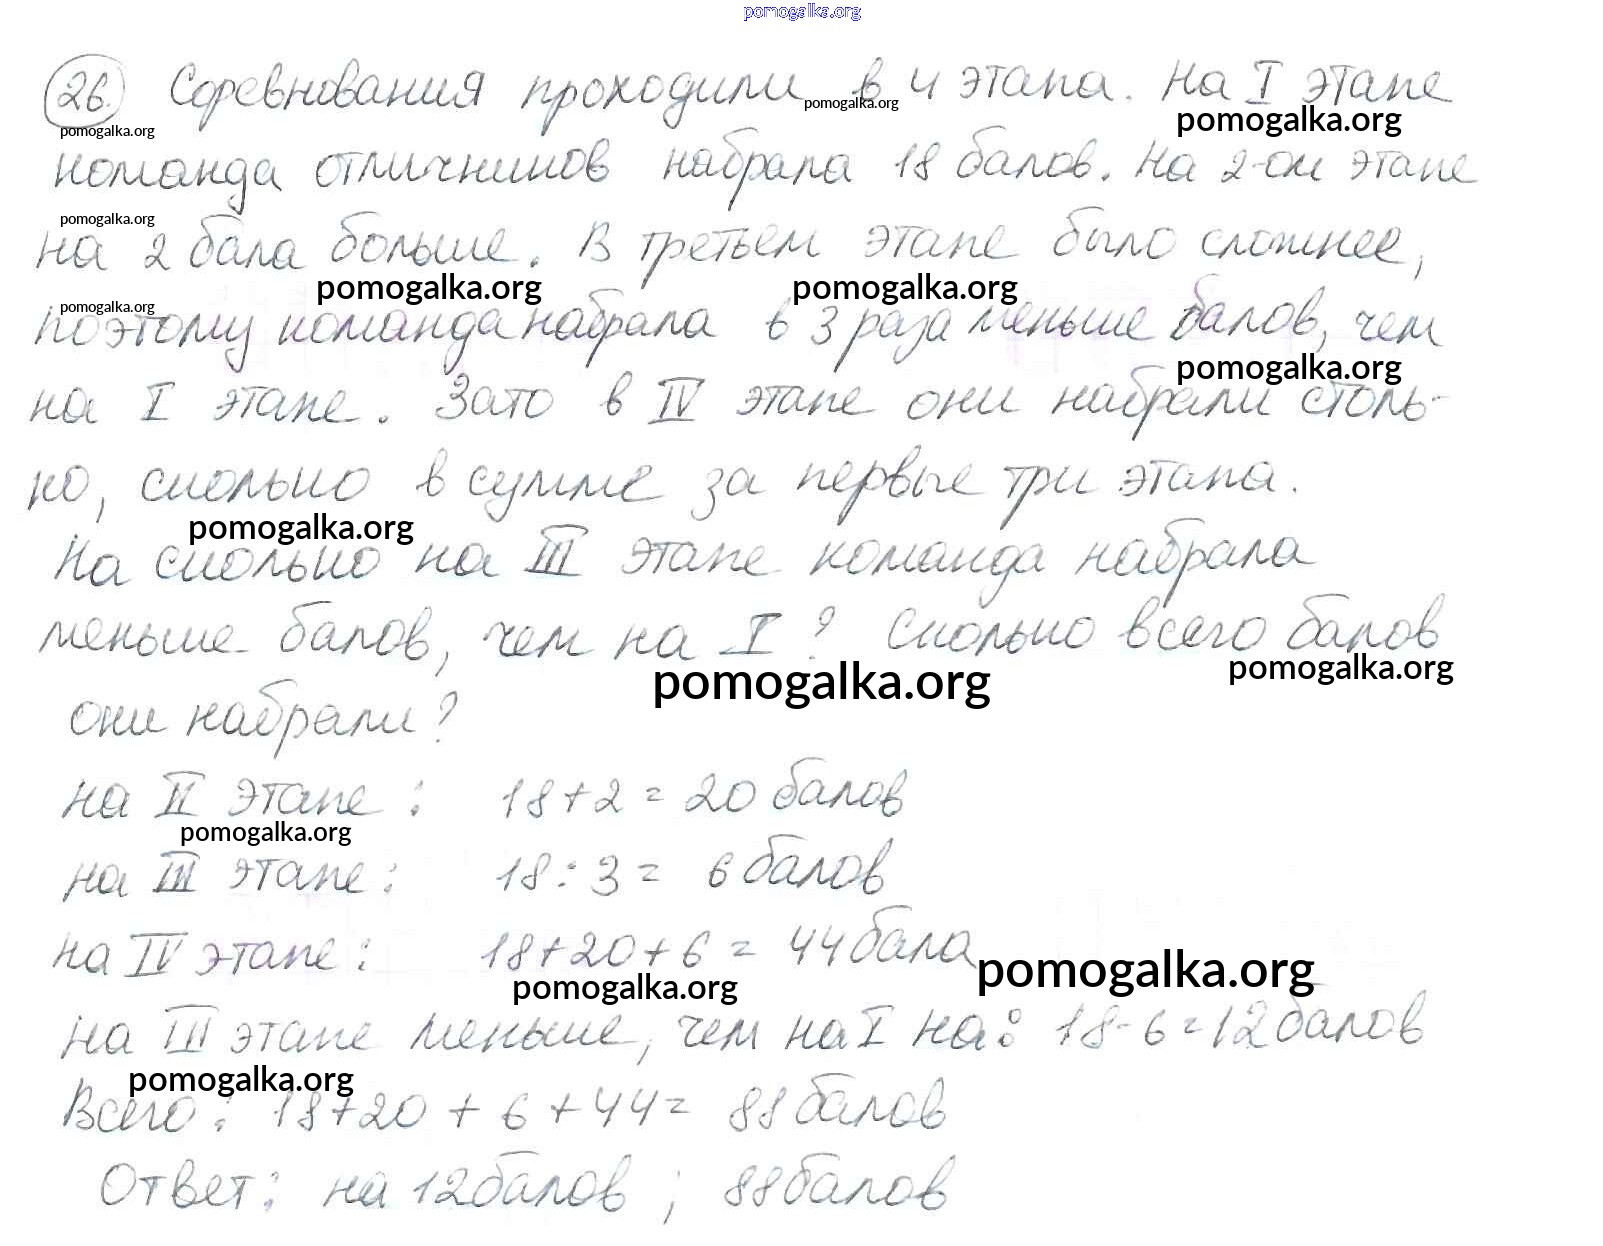 pomogalka.org
26. Соревнования проходили в 4 этапа. На I этапе
pomogalka.org
pomogalka.org
pomogalka.org
команда отличников набрала 18 балов. На 2-ом этапе
pomogalka.org
на 2 бала больше. В третьем этапе было сложнее,
pomogalka.org pomogalka.org
pomogalka.org
поэтому команда набрала в 3 раза меньше балов, чем
pomogalka.org
на I этапе. Зато в IV этапе они набрали столь-
ко, сколько в сумме за первые три этапа.
pomogalka.org
На сколько на III этапе команда набрала
меньше балов, чем на I? Сколько всего балов
pomogalka.org pomogalka.org
они набрали?
на II этапе: 18+2 = 20 балов
pomogalka.org
на III этапе: 18:3 = 6 балов
на IV этапе: 18+20+6 = 44 бала
pomogalka.org pomogalka.org
на III этапе меньше, чем на I на: 18-6=12 балов
pomogalka.org
Всего: 18+20+6+44= 88 балов
Ответ: на 12 балов; 88 балов